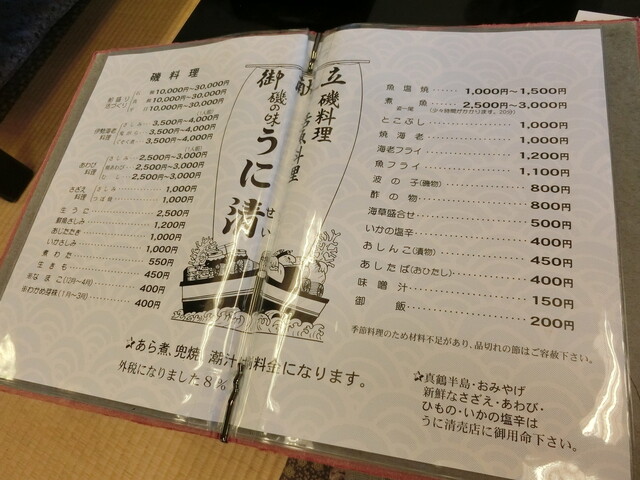 磯料理
10,000円〜30,000円
10,000円〜30,000円
10,000円〜30,000円
伊勢海老料理
さしみ 3,500円〜4,000円
3,500円〜4,000円
3,500円〜4,000円
あわび料理
さしみ 2,500円〜3,000円
2,500円〜3,000円
2,500円〜3,000円
さざえ料理
さしみ 1,000円
つぼ焼 1,000円
生うに 2,500円
鮮魚さしみ 1,200円
あじたたき 1,000円
いかさしみ 1,000円
煮わた 550円
生きも 450円
※なまこ(12月〜4月) 400円
※わかめ芽株(1月〜3月) 400円
御献立
磯の味
磯料理
活魚料理
うに清
せい
魚塩焼 1,000円〜1,500円
煮魚 2,500円〜3,000円
とこぶし 1,000円
焼海老 1,000円
海老フライ 1,200円
魚フライ 1,100円
波の子(磯物) 800円
酢の物 800円
海草盛合せ 500円
いかの塩辛 400円
おしんこ(漬物) 450円
あしたば(おひたし) 400円
味噌汁 150円
御飯 200円
季節料理のため材料不足があり、品切れの節はご容赦下さい。
☆あら煮、兜焼、潮汁別料金になります。
外税になりました8%
☆真鶴半島・おみやげ
新鮮なさざえ・あわび・
ひもの・いかの塩辛は
うに清売店に御用命下さい。